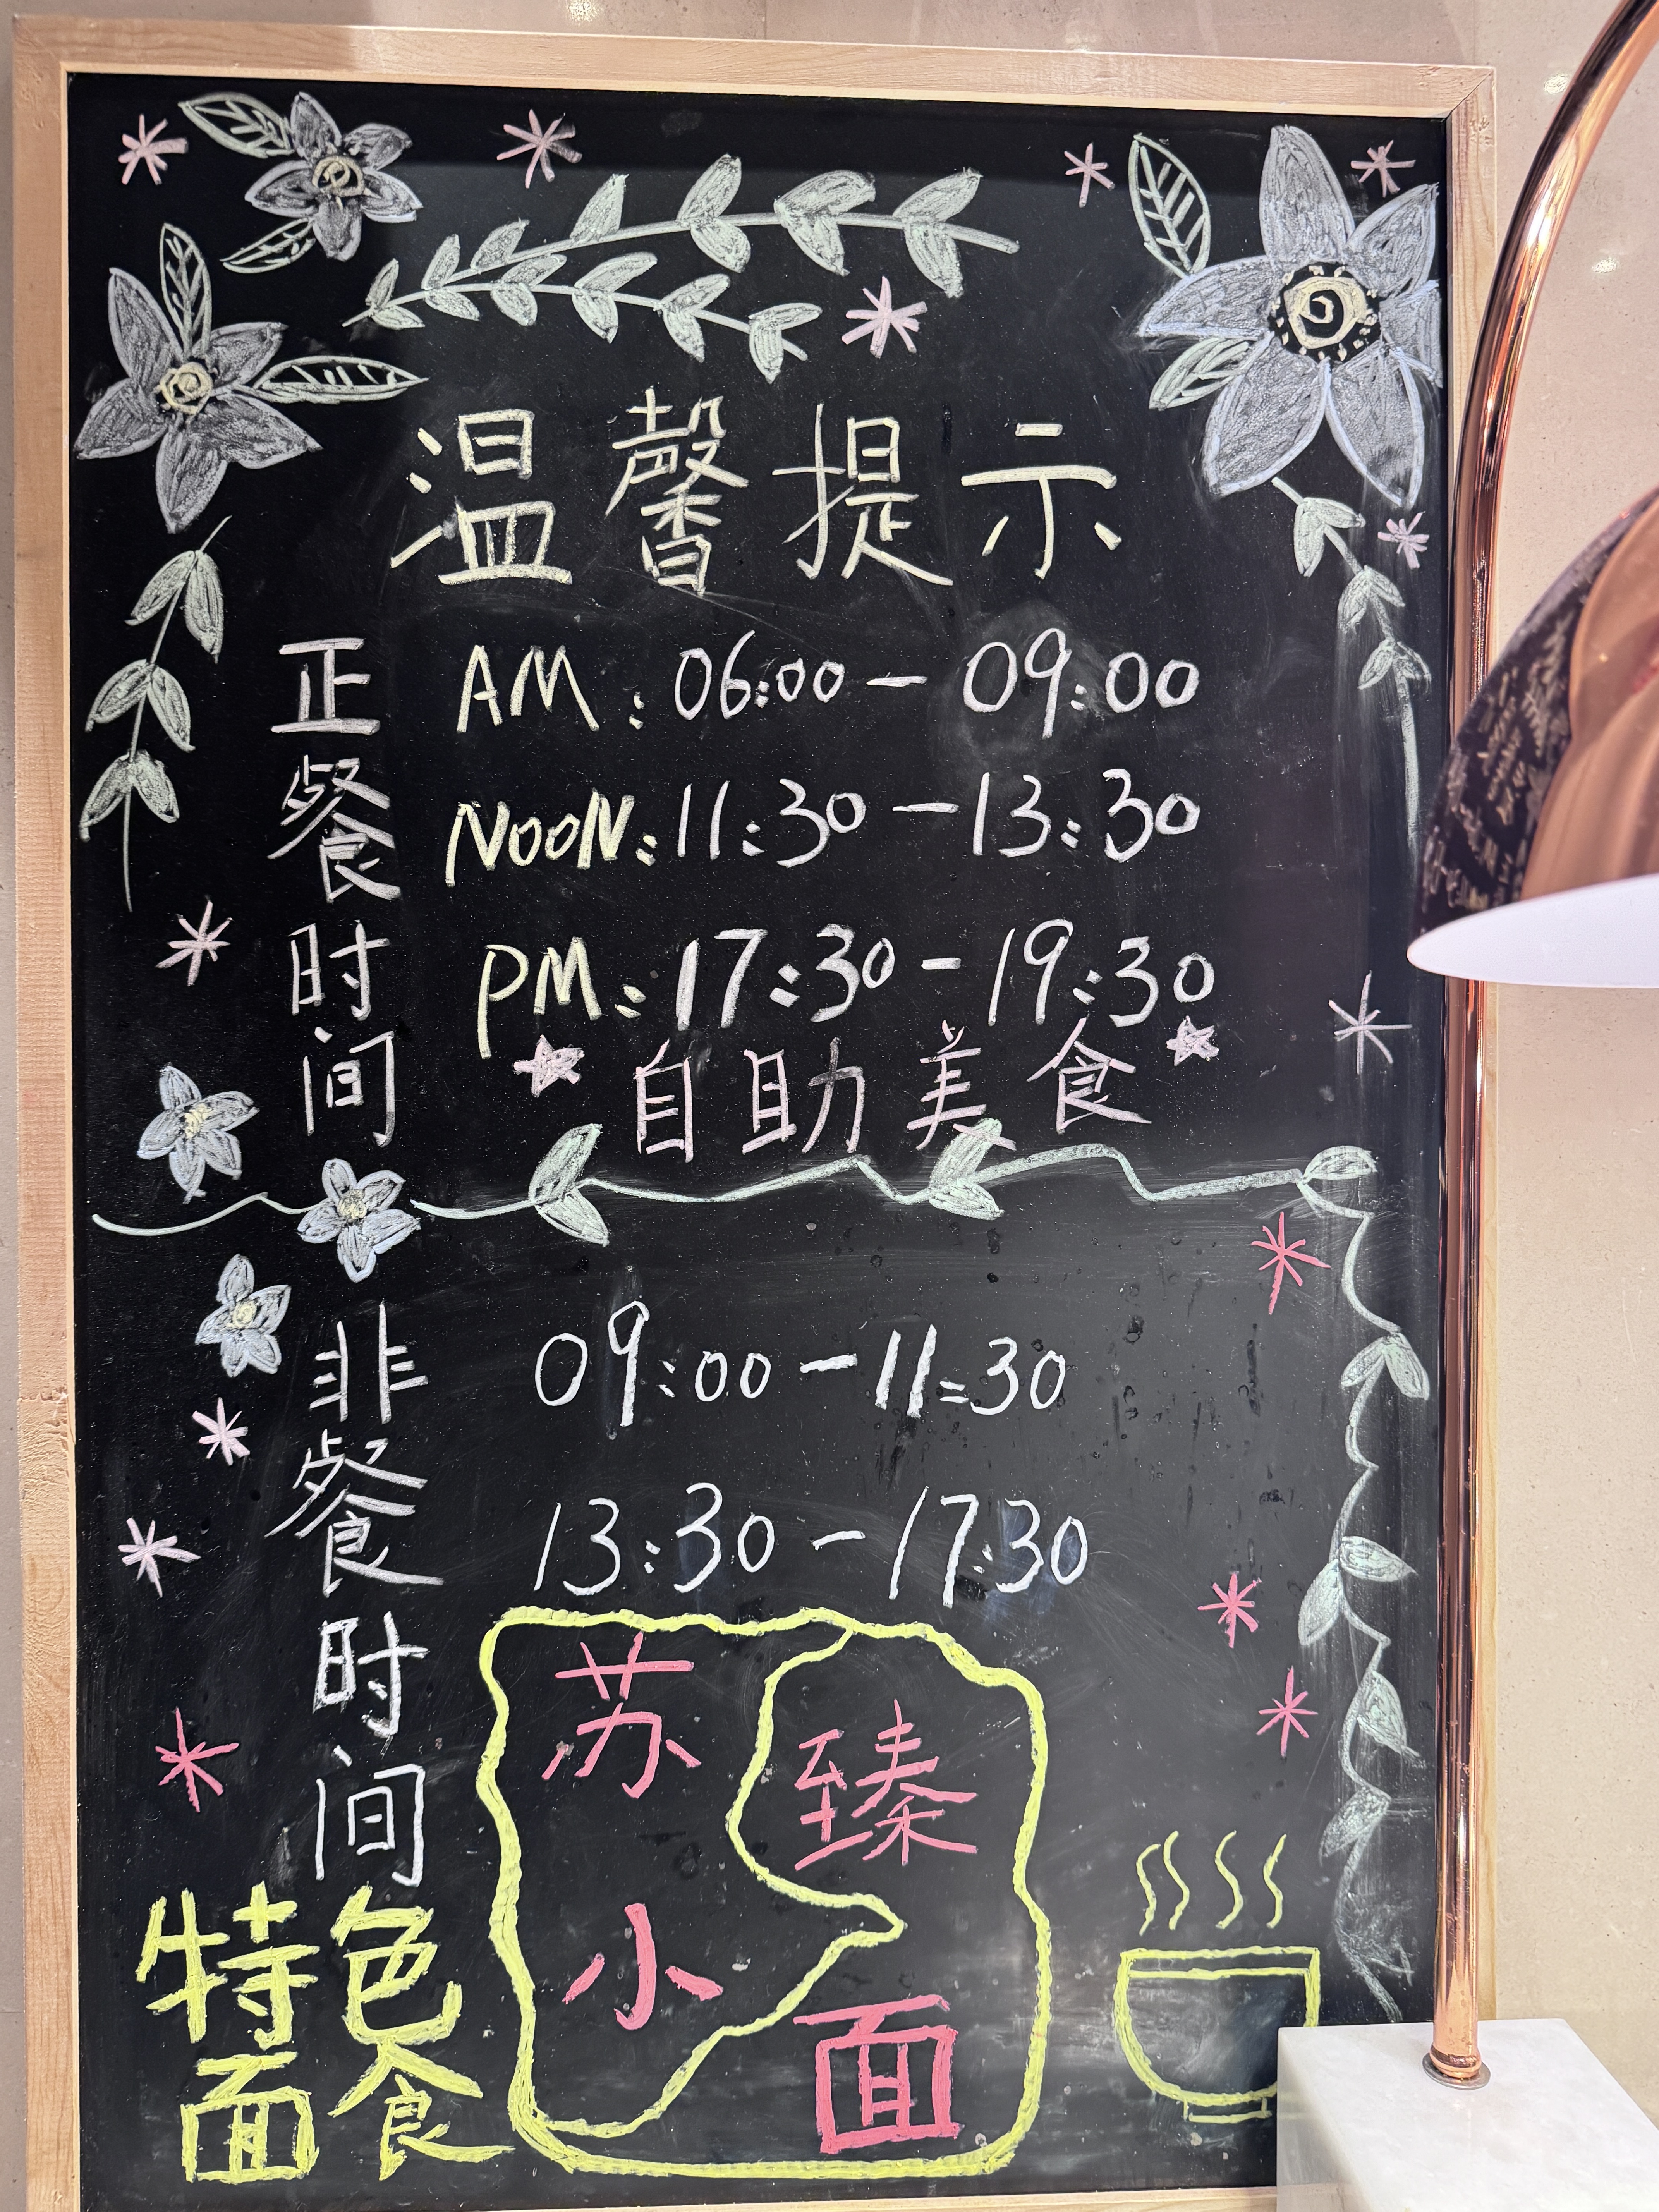 温馨提示
正餐时间
AM:06:00-09:00
NOON:11:30-13:30
PM:17:30-19:30
自助美食
非餐时间
09:00-11:30
13:30-17:30
特色
面食
苏小
臻面